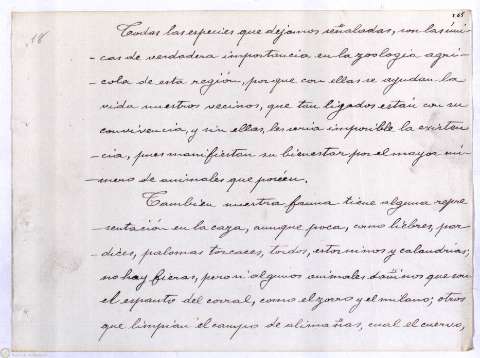 165
18
Todas las especies que dejamos señaladas, son las úni-
-cas de verdadera importancia en la zoología agrí-
-cola de esta región, porque con ellas se ayudan la
vida nuestros vecinos, que tan ligados están con su
convivencia, y sin ellas, les seria imposible la existen-
-cia, pues manifiestan su bienestar por el mayor nú-
-mero de animales que poséen.
Tambien nuestra fauna tiene alguna repre-
-sentación en la caza, aunque poca, como liebres, per-
-dices, palomas torcaces, tordos, estorninos y calandrias;
no hay fieras, pero si algunos animales dañinos que son
el espanto del corral, como el zorro y el milano; otros
que limpian el campo de alimañas, cual el cuervo,